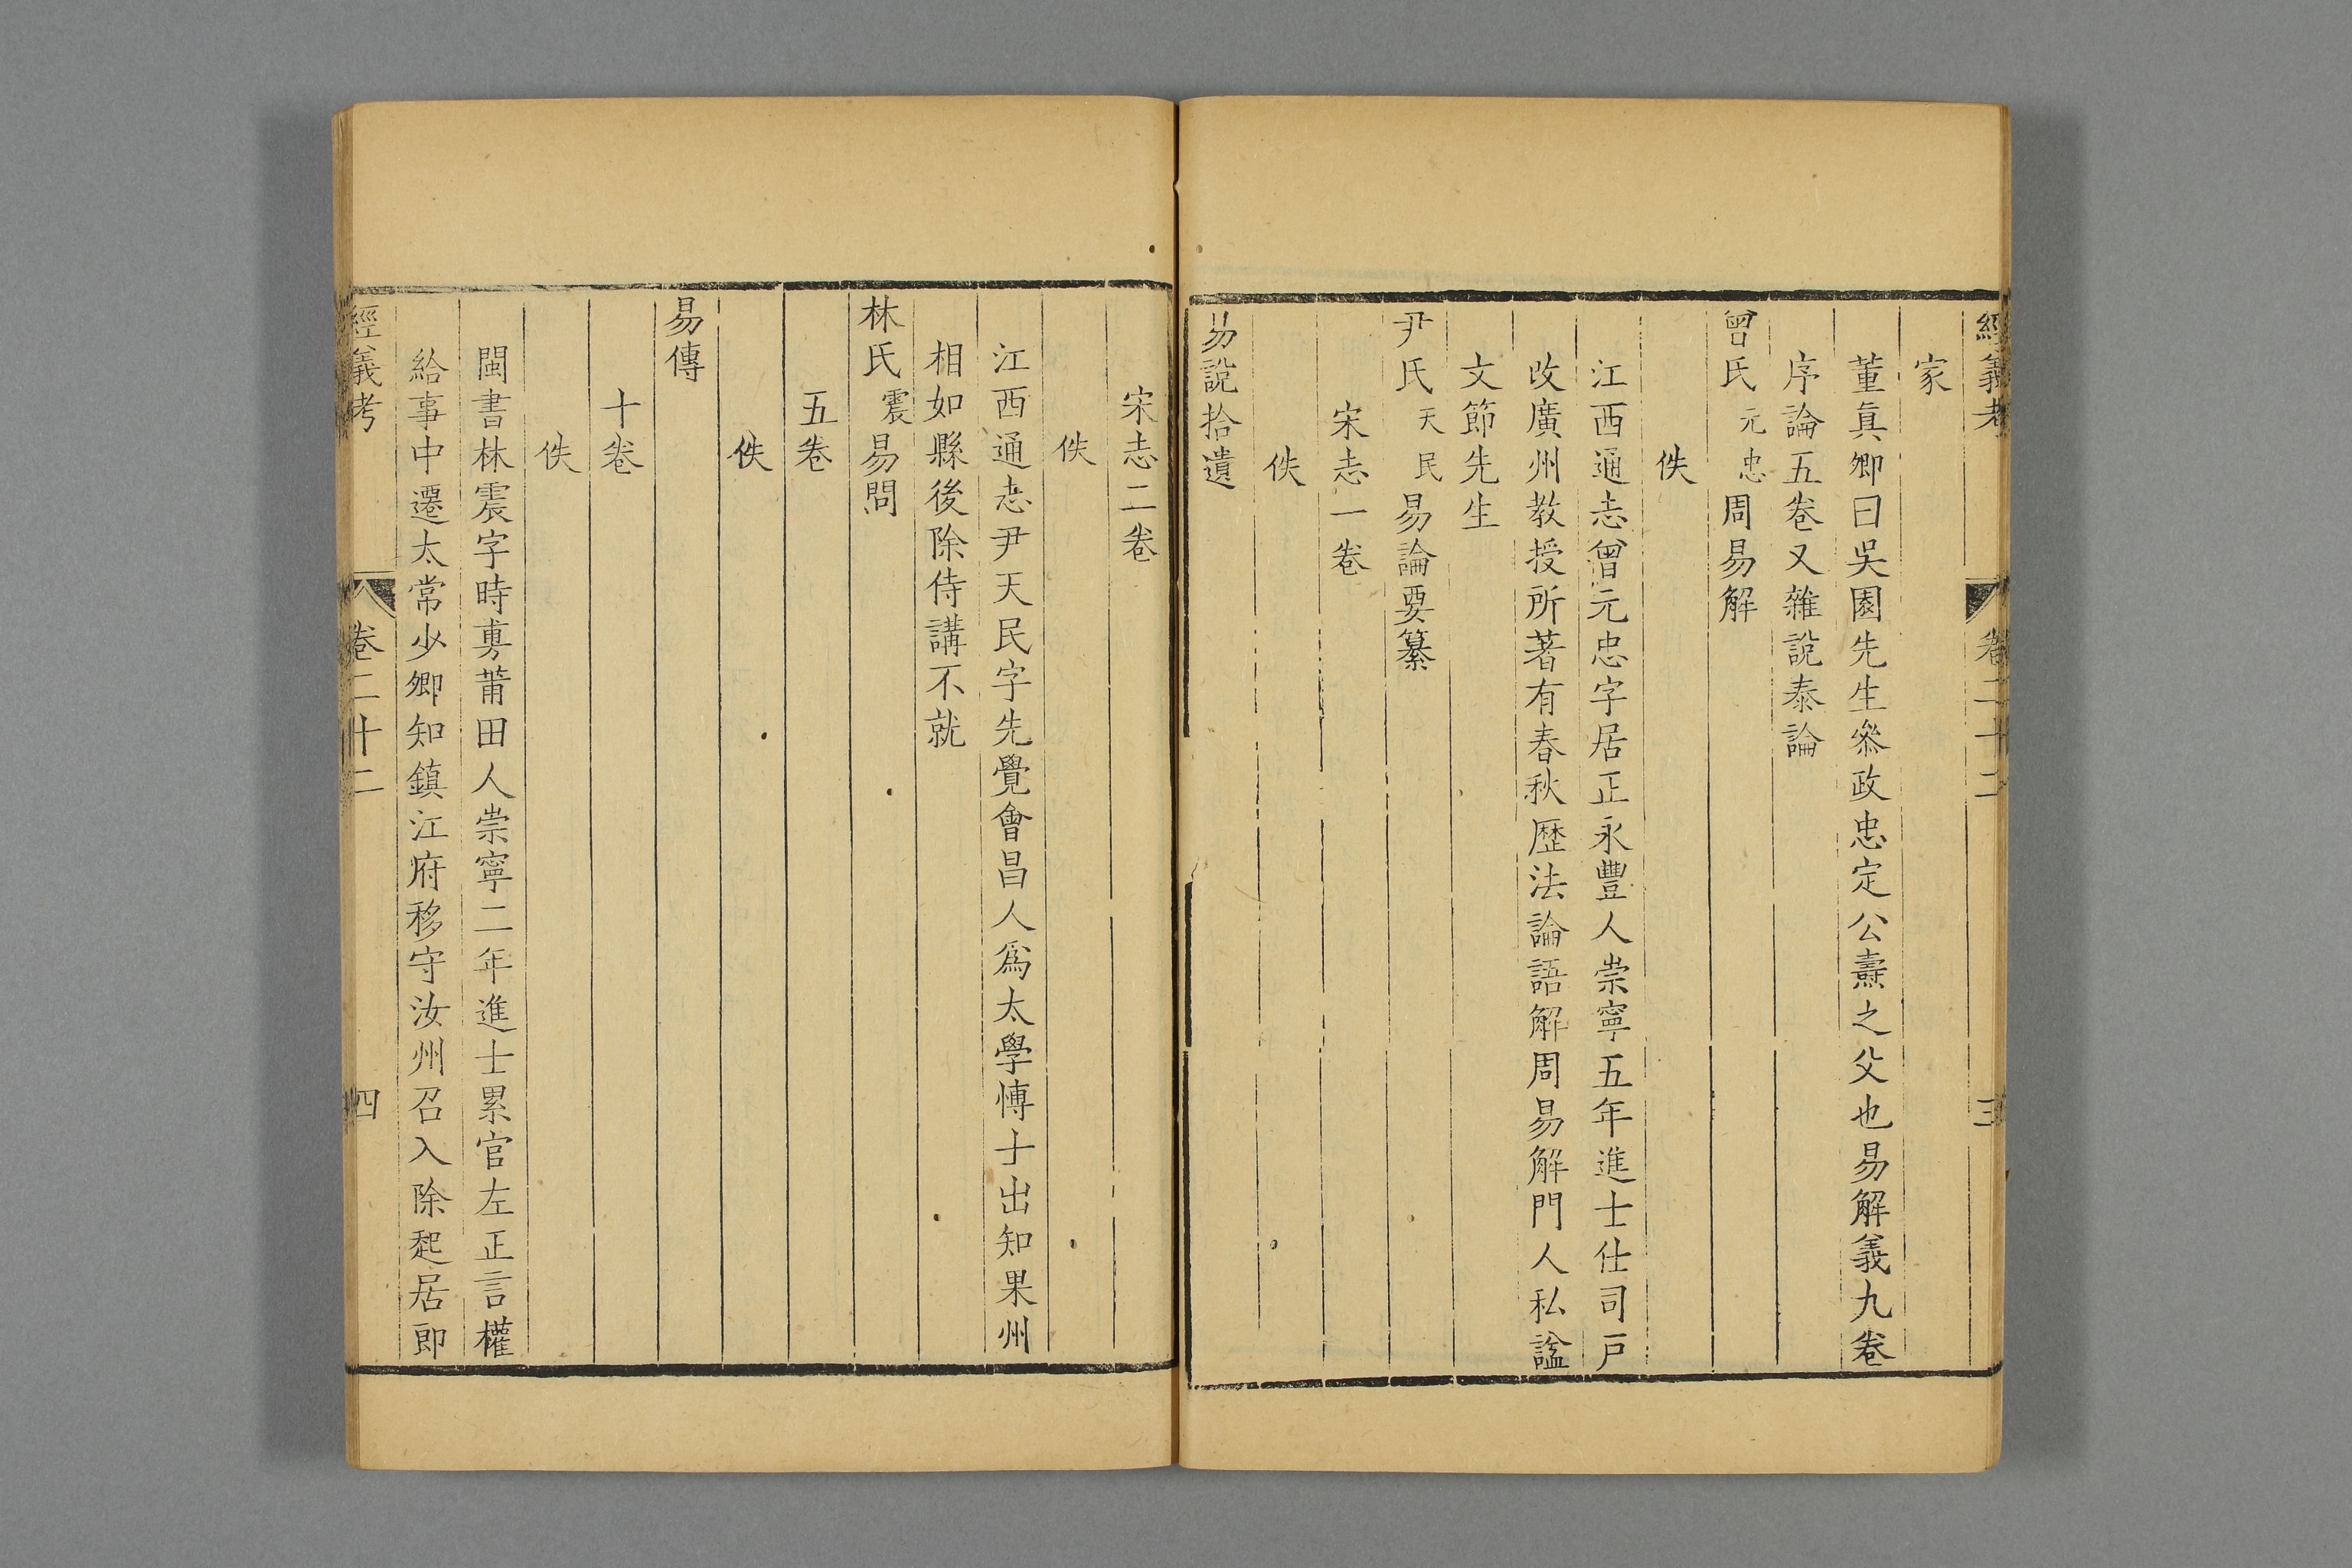 經義考 卷二十二 三
家
董真卿曰吳園先生叅政忠定公燾之父也易解義九卷
序論五卷又雜說泰論
曾氏元忠周易解
佚
江西通志曾元忠字居正永豐人崇寧五年進士仕司戶
改廣州教授所著有春秋歷法論語解周易解門人私謚
文節先生
尹氏天民易論要纂
宋志一卷
佚
易說拾遺
宋志二卷
佚
江西通志尹天民字先覺會昌人爲太學博士出知果州
相如縣後除侍講不就
林氏震易問
五卷
佚
易傳
十卷
佚
閩書林震字時旉莆田人崇寧二年進士累官左正言權
給事中遷太常少卿知鎮江府移守汝州召入除起居郎
經義考 卷二十二 四